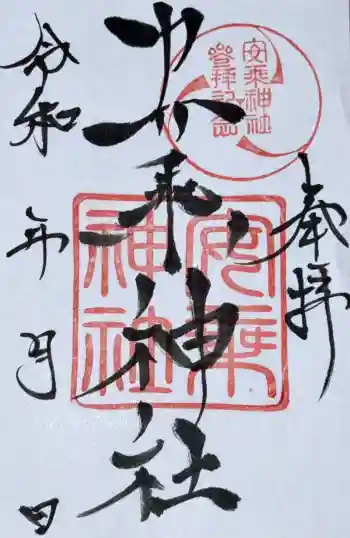 奉拝
安乗神社
登拝記念
安乗神社
安乗
神社
令和
年
月
日